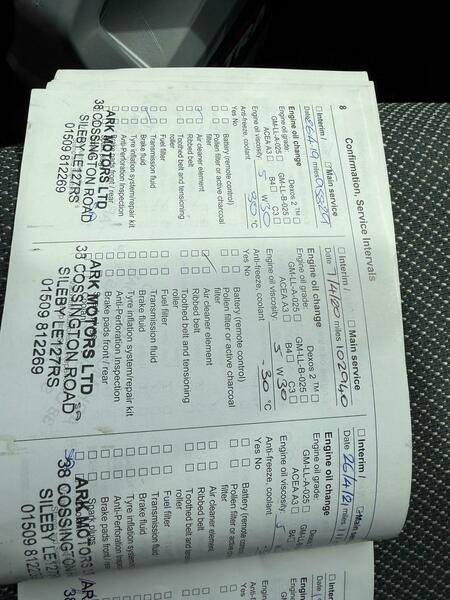 8
Confirmation, Service Intervals
Interim / Main service
Date 26.4.19 miles
Engine oil change
Engine oil grade: Dexos 2 ™
GM-LL-A-025 GM-LL-B-025
ACEA A3 B4 C3
Engine oil viscosity: 5 W 30
Anti-freeze, coolant -30 °C
Yes No
Battery (remote control)
Pollen filter or active charcoal
filter
Air cleaner element
Ribbed belt
Toothed belt and tensioning
roller
Fuel filter
Transmission fluid
Brake fluid
Tyre inflation system/repair kit
Anti-Perforation Inspection
ARK MOTORS LTD
38 COSSINGTON ROAD
SILEBY LE127RS
01509 812269
Interim / Main service
Date 7/4/20 miles 102940
Engine oil change
Dexos 2 ™
GM-LL-A-025 GM-LL-B-025
ACEA A3 B4 C3
Engine oil viscosity: 5 W 30
Anti-freeze, coolant -30 °C
Yes No
Battery (remote control)
Pollen filter or active charcoal
filter
Air cleaner element
Ribbed belt
Toothed belt and tensioning
roller
Fuel filter
Transmission fluid
Brake fluid
Tyre inflation system/repair kit
Anti-Perforation Inspection
Brake pads front / rear
ARK MOTORS LTD
38 COSSINGTON ROAD
SILEBY LE127RS
01509 812269
Interim / Main
Date 26/4/21 miles
Engine oil change
Engine oil grade:
GM-LL-A-025
ACEA A3
Engine oil viscosity: 5
Anti-freeze, coolant
Yes No
Battery (remote
Pollen filter or active
filter
Air cleaner element
Ribbed belt
Toothed belt and
roller
Fuel filter
Transmission fluid
Brake fluid
Tyre inflation
Anti-Perforation
Brake pads front
ARK MOTORS
38 COSSINGTON
SILEBY LE127
01509 812